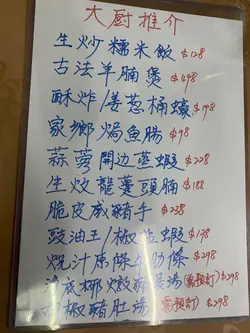 大厨推介
生炒糯米飯 $128
古法羊腩煲 $498
酥炸/姜葱桶蠔 $198
家鄉焗魚腸 $98
蒜蓉開邊蒸蝦 $228
生炆龍躉頭腩 $188
脆皮咸豬手 $238
豉油王/椒鹽蝦 $198
燒汁原條牛肋條 $298
椰 燉 湯(需預訂) $298
胡椒豬肚湯(需預訂) $298